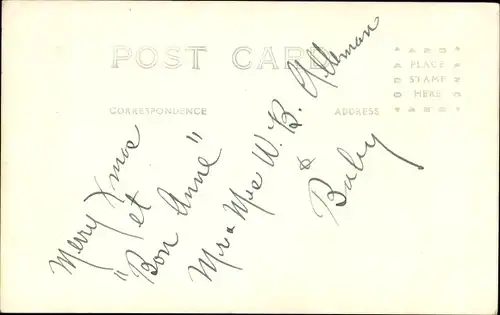 POST CARD
CORRESPONDENCE
ADDRESS
PLACE
STAMP
HERE
Merry Xmas
et
"Bon Anne"
Mr & Mrs W. B.
&
Baby